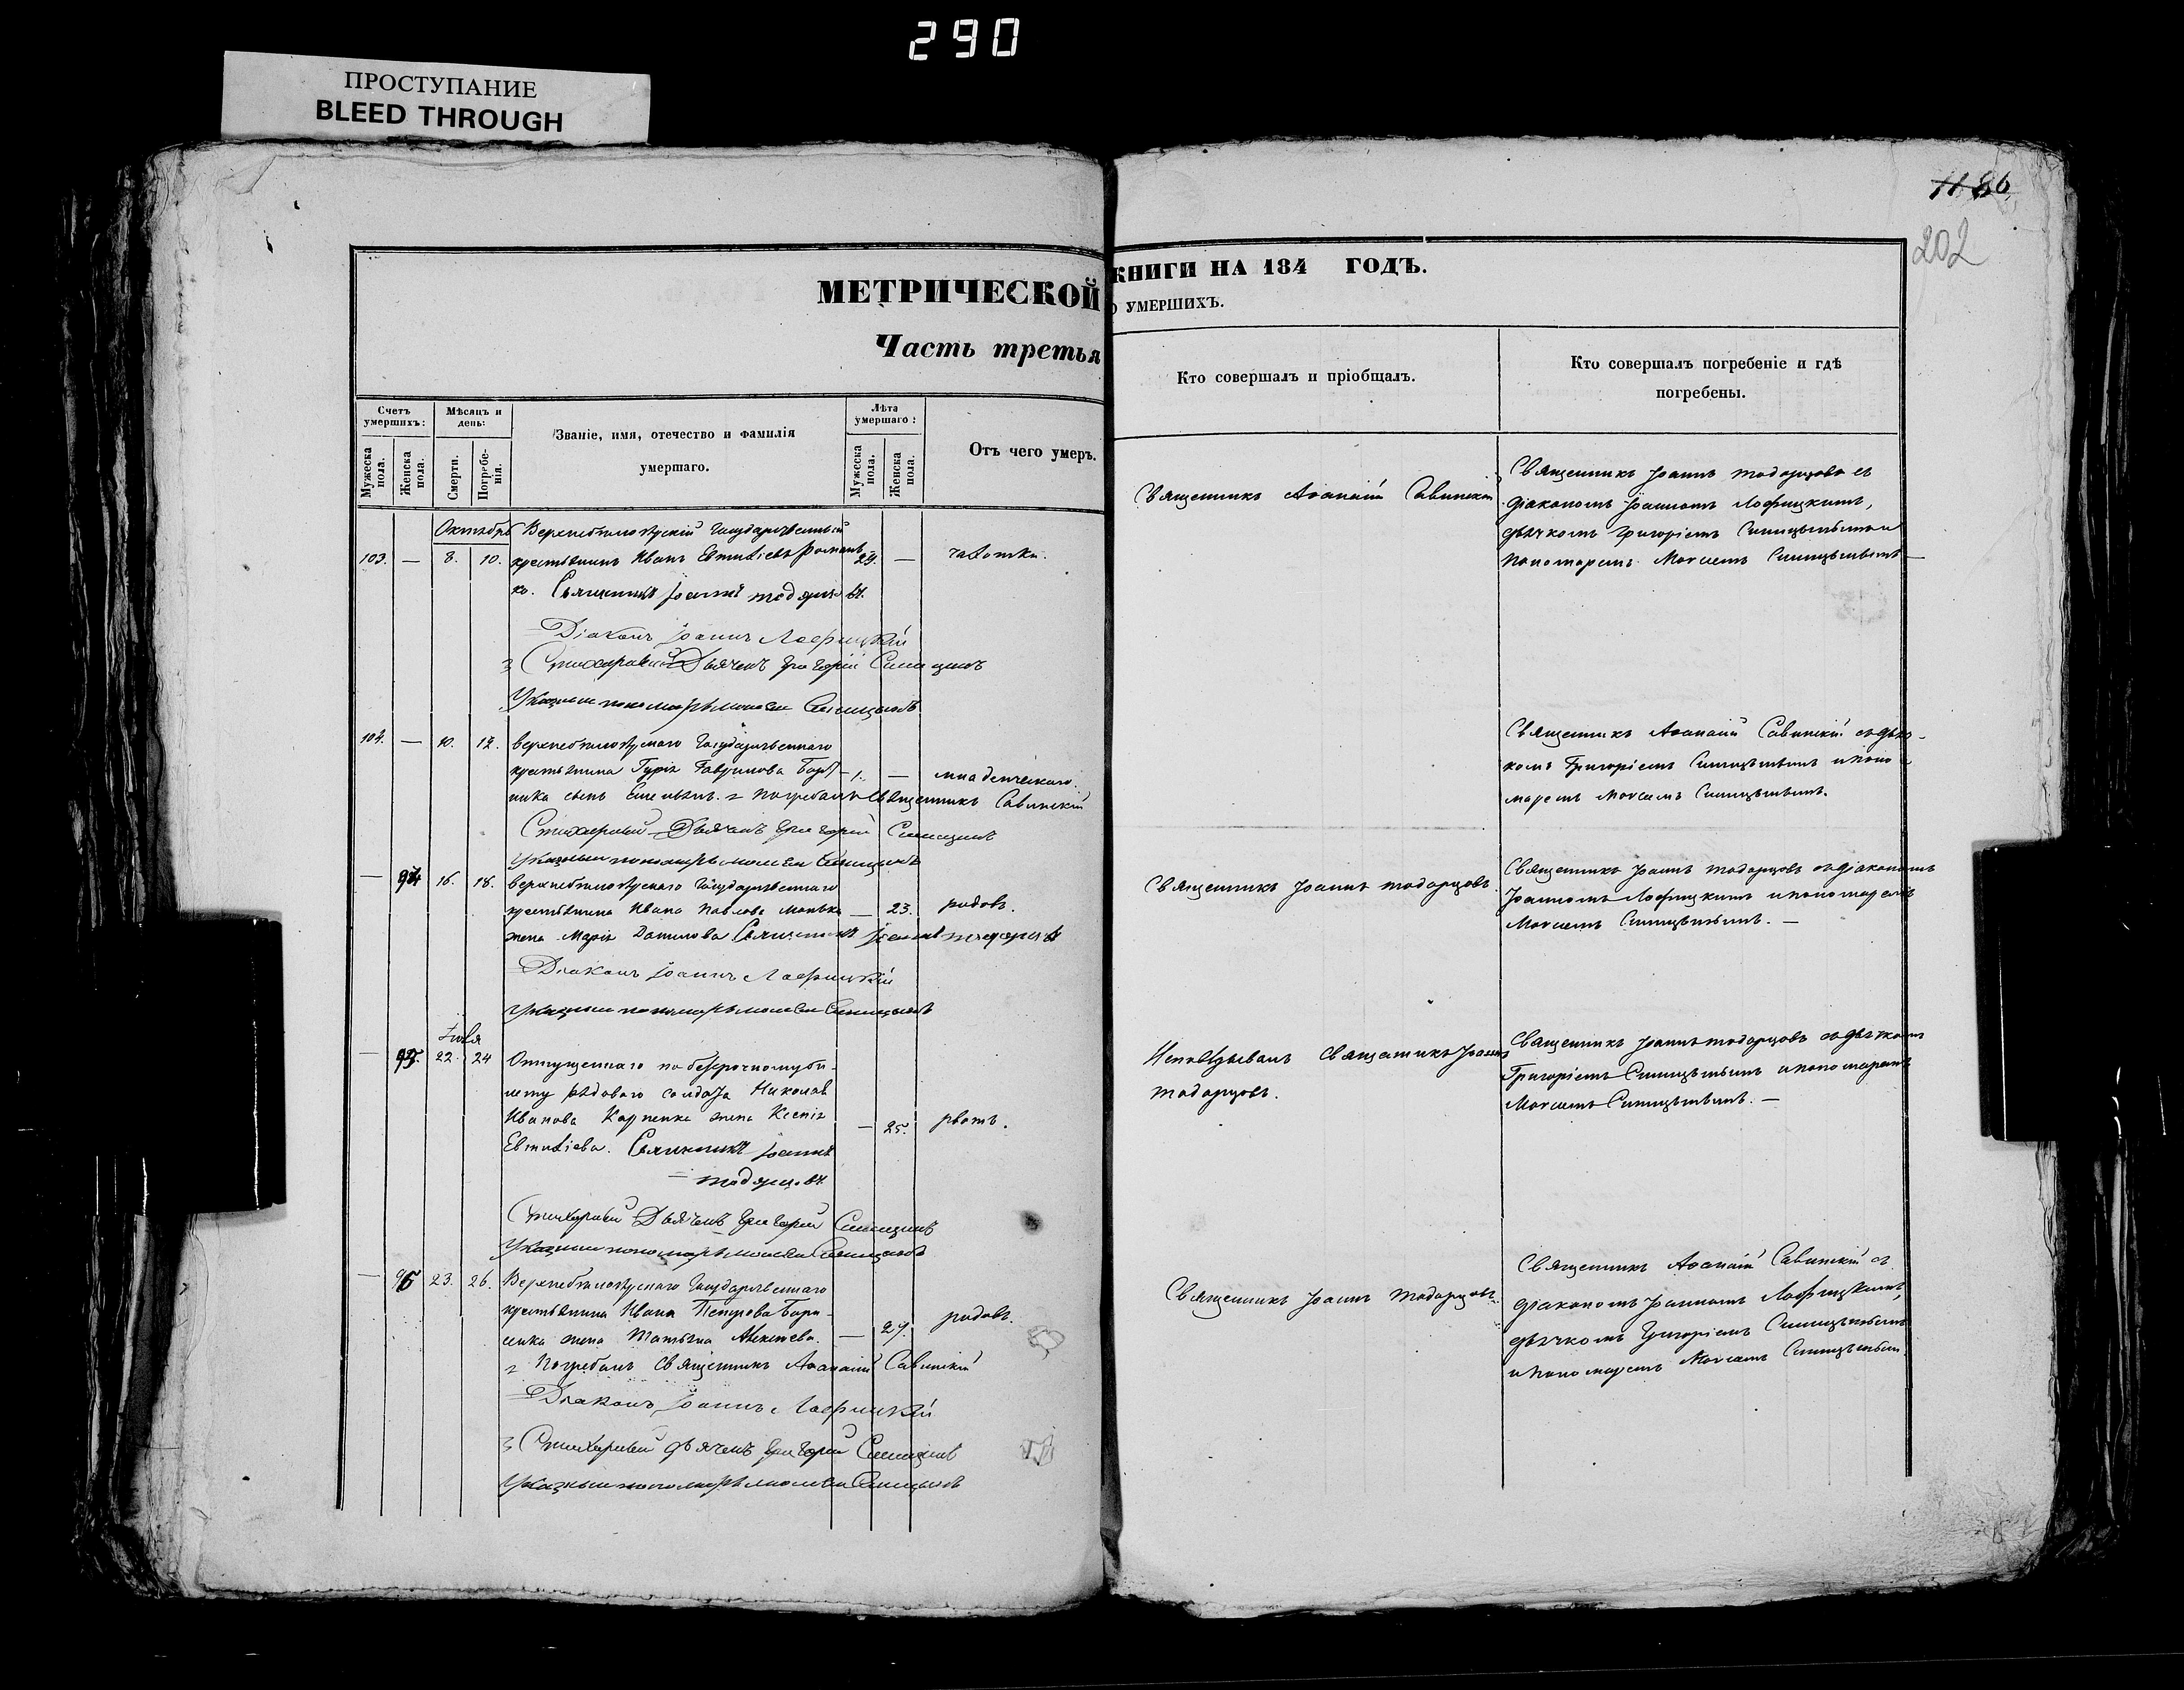 290
ПРОСТУПАНИЕ
BLEED THROUGH
1186
202
МЕТРИЧЕСКОЙ КНИГИ НА 184 ГОДЪ.
Часть третья О УМЕРШИХЪ.
Счетъ умершихъ:
Мужеска пола.
Женска пола.
Мѣсяцъ и день:
Смерти.
Погребенія.
Званіе, имя, отечество и фамилія
умершаго.
Лѣта умершаго:
Мужеска пола.
Женска пола.
Отъ чего умеръ.
Кто совершалъ и пріобщалъ.
Кто совершалъ погребеніе и гдѣ
погребены.
Октябрь
103. — 8. 10.
государственный
крестьянинъ Иванъ Евтихіевъ Романь
ко. Священникъ Іоаннъ Тодорцовъ.
29. — чахотка.
Священникъ Аѳанасій Савинскій
Священникъ Іоаннъ Тодорцовъ съ
діакономъ Іоанномъ Лофицкимъ,
дьячкомъ Григоріемъ Синицынымъ и
пономаремъ Моѵсеемъ Синицынымъ —
Діаконъ Іоаннъ Лофицкій
Стихарный Дьячекъ Григорій Синицынъ
Указный пономарь Моисей Синицынъ
104. — 10. 12.
государственнаго
крестьянина Гурія Гаврилова
сынъ Емельянъ. Погребалъ священникъ Савинскій
1. — младенческаго.
Священникъ Аѳанасій Савинскій съ дьяч-
комъ Григоріемъ Синицынымъ и поно
маремъ Моѵсеемъ Синицынымъ.
Стихарный Дьячекъ Григорій Синицынъ
Указный пономарь Моисей Синицынъ
— 94 16. 18.
государственнаго
крестьянина Ивана Павлова Манька
жена Марія Данилова Священникъ Іоаннъ Тодорцовъ
— 23. родовъ.
Священникъ Іоаннъ Тодорцовъ.
Священникъ Іоаннъ Тодорцовъ съ діакономъ
Іоанномъ Лофицкимъ и пономаремъ
Моѵсеемъ Синицынымъ. —
Діаконъ Іоаннъ Лофицкій
Указный пономарь Моисей Синицынъ
— 95. 22. 24
Отпущеннаго по безсрочному би-
лету рядоваго солдата Николая
Иванова Карпенка жена Ксенія
Евтихіева. Священникъ Іоаннъ
Тодорцовъ.
— 25. рвотъ.
Исповѣдывалъ Священникъ Іоаннъ
Тодорцовъ.
Священникъ Іоаннъ Тодорцовъ съ дьячкомъ
Григоріемъ Синицынымъ и пономаремъ
Моѵсеемъ Синицынымъ. —
Стихарный Дьячекъ Григорій Синицынъ
Указный пономарь Моисей Синицынъ
— 96 23. 26.
государственнаго
крестьянина Ивана Петрова Бори-
сенка жена Татьяна Алексѣева.
Погребалъ Священникъ Аѳанасій Савинскій
— 27. родовъ.
Священникъ Іоаннъ Тодорцовъ.
Священникъ Аѳанасій Савинскій съ
діакономъ Іоанномъ Лофицкимъ,
дьячкомъ Григоріемъ Синицынымъ
и пономаремъ Моѵсеемъ Синицынымъ.
Діаконъ Іоаннъ Лофицкій
Стихарный дьячекъ Григорій Синицынъ
Указный пономарь Моисей Синицынъ